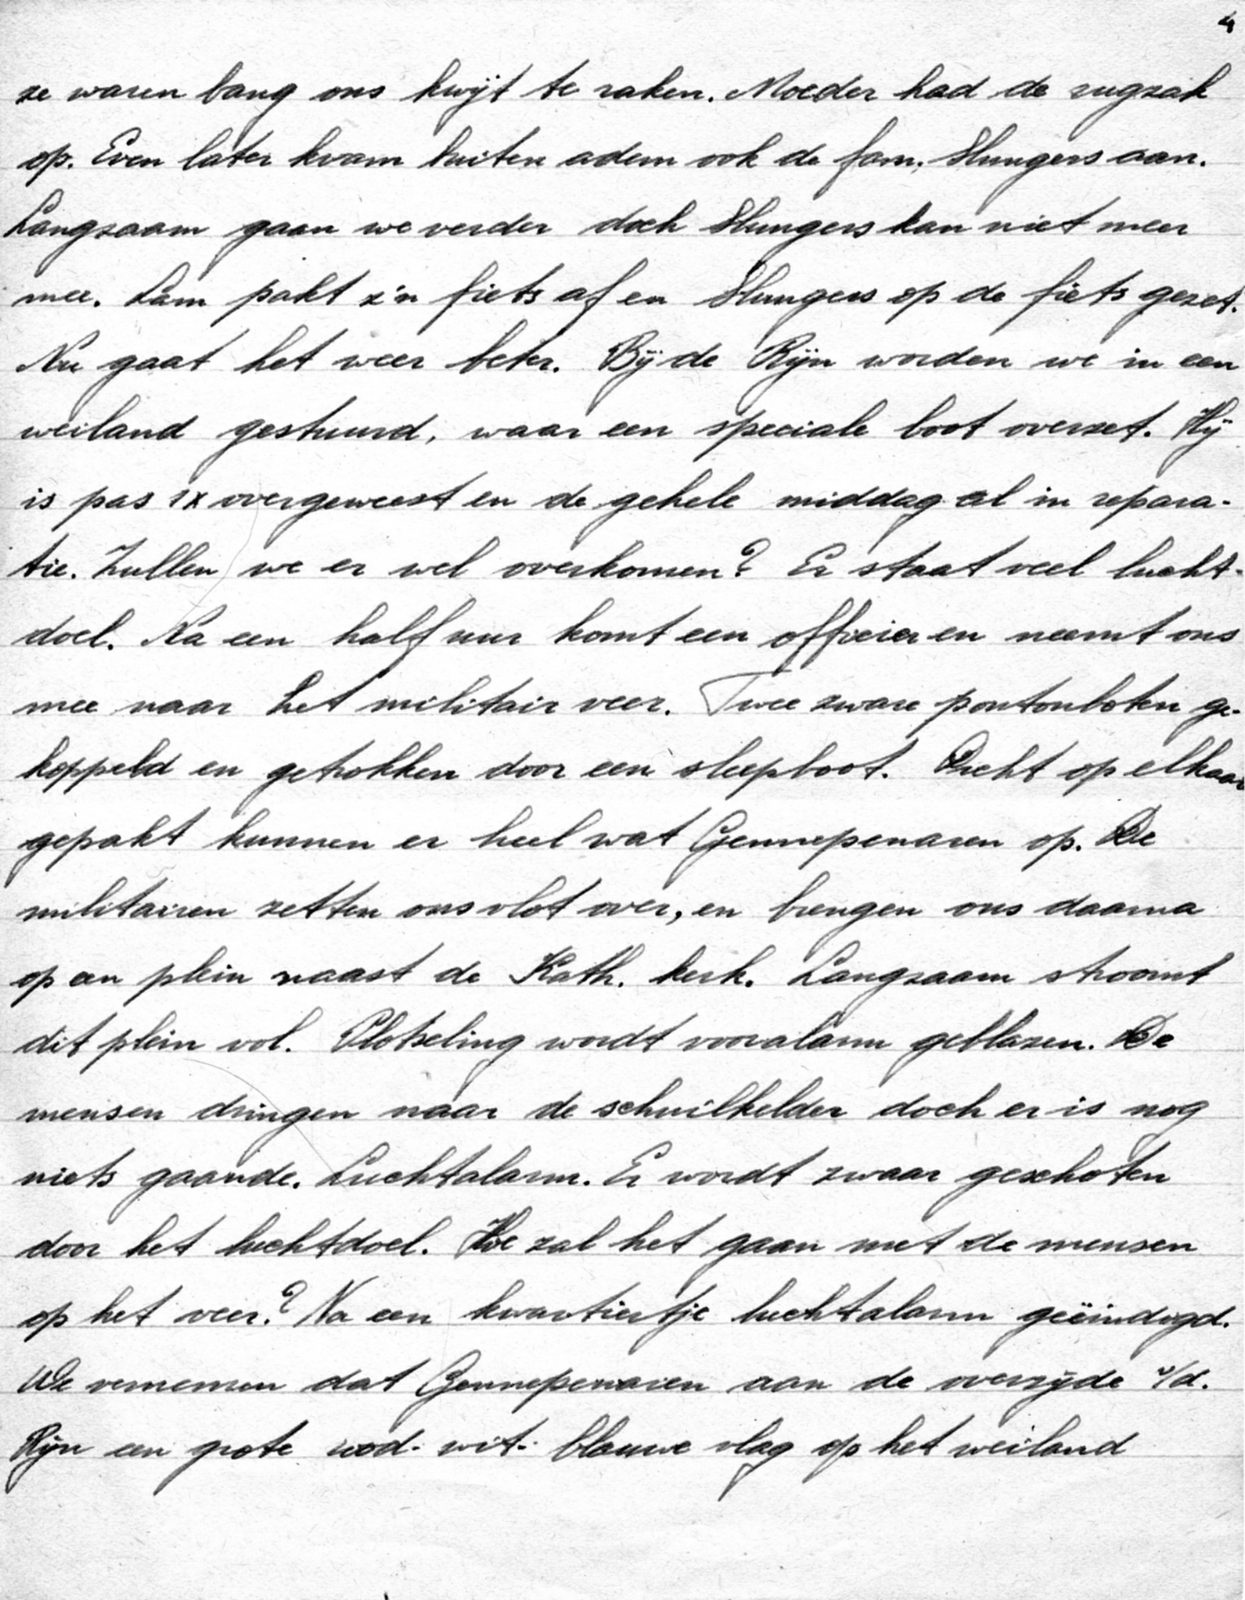 4
ze waren bang ons kwijt te raken. Moeder had de rugzak
op. Even later kwam buiten adem ook de fam. Slungers aan.
Langzaam gaan we verder doch Slungers kan niet meer
mee. Lam pakt z'n fiets af en Slungers op de fiets gezet.
Nu gaat het weer beter. Bij de Rijn worden we in een
weiland gestuurd, waar een speciale boot overzet. Hij
is pas 1x overgeweest en de gehele middag al in repara-
tie. Zullen we er wel overkomen? Er staat veel lucht-
doel. Na een half uur komt een officier en neemt ons
mee naar het militair veer. Twee zware pontonboten ge-
koppeld en getrokken door een sleepboot. Dicht op elkaar
gepakt kunnen er heel wat Gennepenaren op. De
militairen zetten ons vlot over, en brengen ons daarna
op een plein naast de Kath. kerk. Langzaam stroomt
dit plein vol. Plotseling wordt vooralarm geblazen. De
mensen dringen naar de schuilkelder doch er is nog
niets gaande. Luchtalarm. Er wordt zwaar geschoten
door het luchtdoel. Hoe zal het gaan met de mensen
op het veer? Na een kwartiertje luchtalarm geëindigd.
We vernemen dat Gennepenaren aan de overzijde v/d.
Rijn een grote rood- wit- blauwe vlag op het weiland